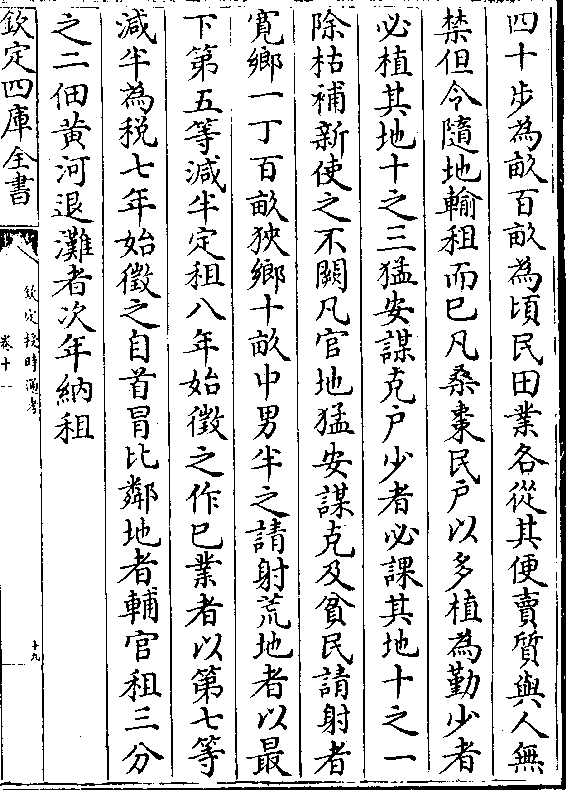 四十步為畝百畝為頃民田業各從其便賣質與人無
禁但令隨地輸租而已凡桑棗民戶以多植為勤少者
必植其地十之三猛安謀克戶少者必課其地十之一
除枯補新使之不闕凡官地猛安謀克及貧民請射者
寛鄉一丁百畝狹鄉十畝中男半之請射荒地者以最
下第五等減半定租八年始徵之作已業者以第七等
減半為税七年始徵之自首冒比鄰地者輔官租三分
之二佃黄河退灘者次年納租
欽定四庫全書
欽定授時通考
卷十一
十九